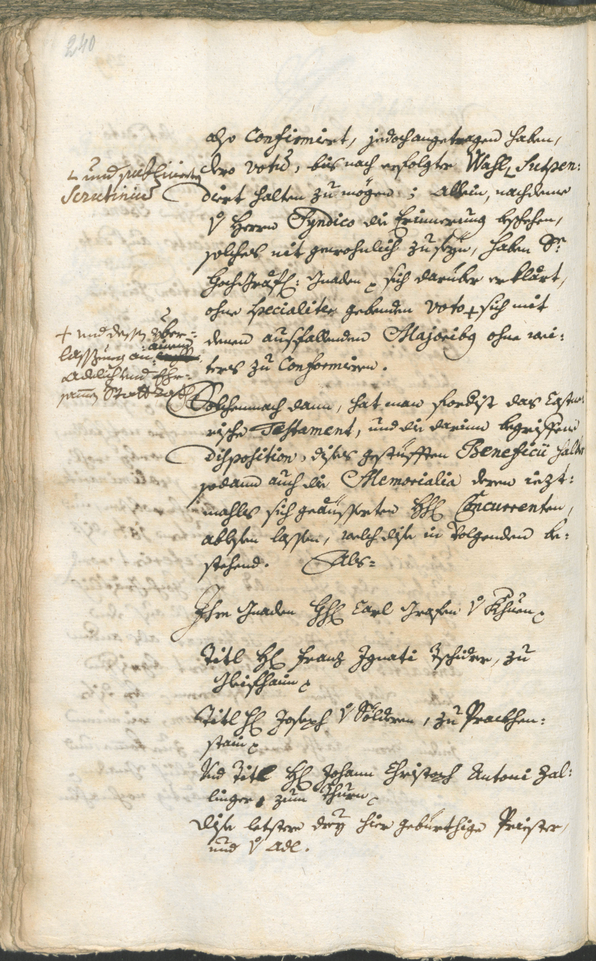 240
also Confirmirt, jedoch angetragen haben,
dero votum, bis nach erfolgter Wahl Suspen:
dirt halten zu mögen; Allein, nachdeme
v Herrn Syndico die Erinnerung beschehen,
solches nit gewohnlich zu seyn, haben Sr:
Hochgräfl: Gnaden sich darüber erklärt,
ohne specialiter gebenden voto + sich mit
denen ausfallenden Majoribus ohne wei:
ters zu Conformiren.
und publicirten
Scrutinium
+ und dessen über-
lassung an
Adelich und Ehr-
samen Stattrath
Solchemnach dann, hat man fordist das
rische Testament, und die darinn begriffene
Disposition, dises gestüfften Beneficii halber
sodann auch die Memorialia deren iezt:
mahls sich geäusserten HH Concurrenten,
ablesen lassen, welch dise in volgenden be:
stehend. Als:
Ihro Gnaden HH Carl Grafen v Khuen
Titl H Franz Ignati Tschiderer, zu
Gleifhaim
Titl H Joseph v Söldern, zu Prackhen:
stain
Und Titl H Johann Christoph Antoni Zal:
linger zum Thurn
dise letstere drey hier gebürthige Priester,
und v Adl.